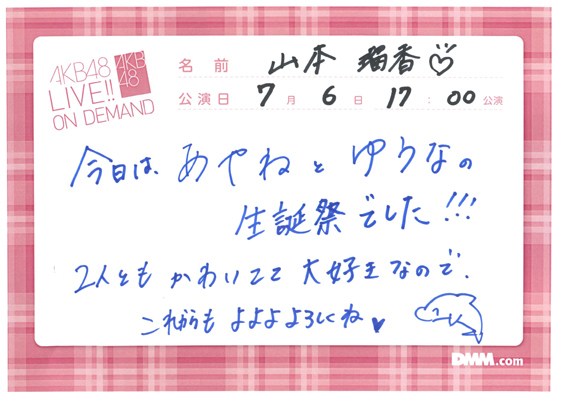 AKB48
LIVE!!
ON DEMAND
AKB
48
名前 山本 瑠香♡
公演日 7月 6日 17:00公演
今日は、あやねとゆうなの
生誕祭でした!!!
2人ともかわいくて大好きなので、
これからもよよよよろしくね♥
DMM.com